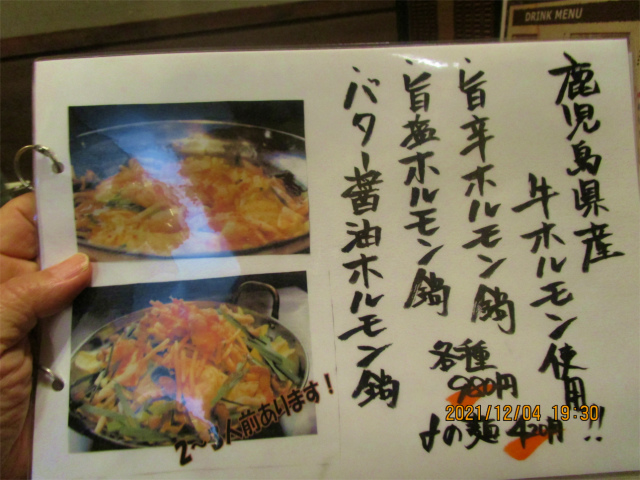 DRINK MENU
鹿児島県産
牛ホルモン使用!!
・旨辛ホルモン鍋
・旨塩ホルモン鍋
・バター醤油ホルモン鍋
各種
980円
〆の麺 420円
2~3人前あります!
2021/12/04 19:30